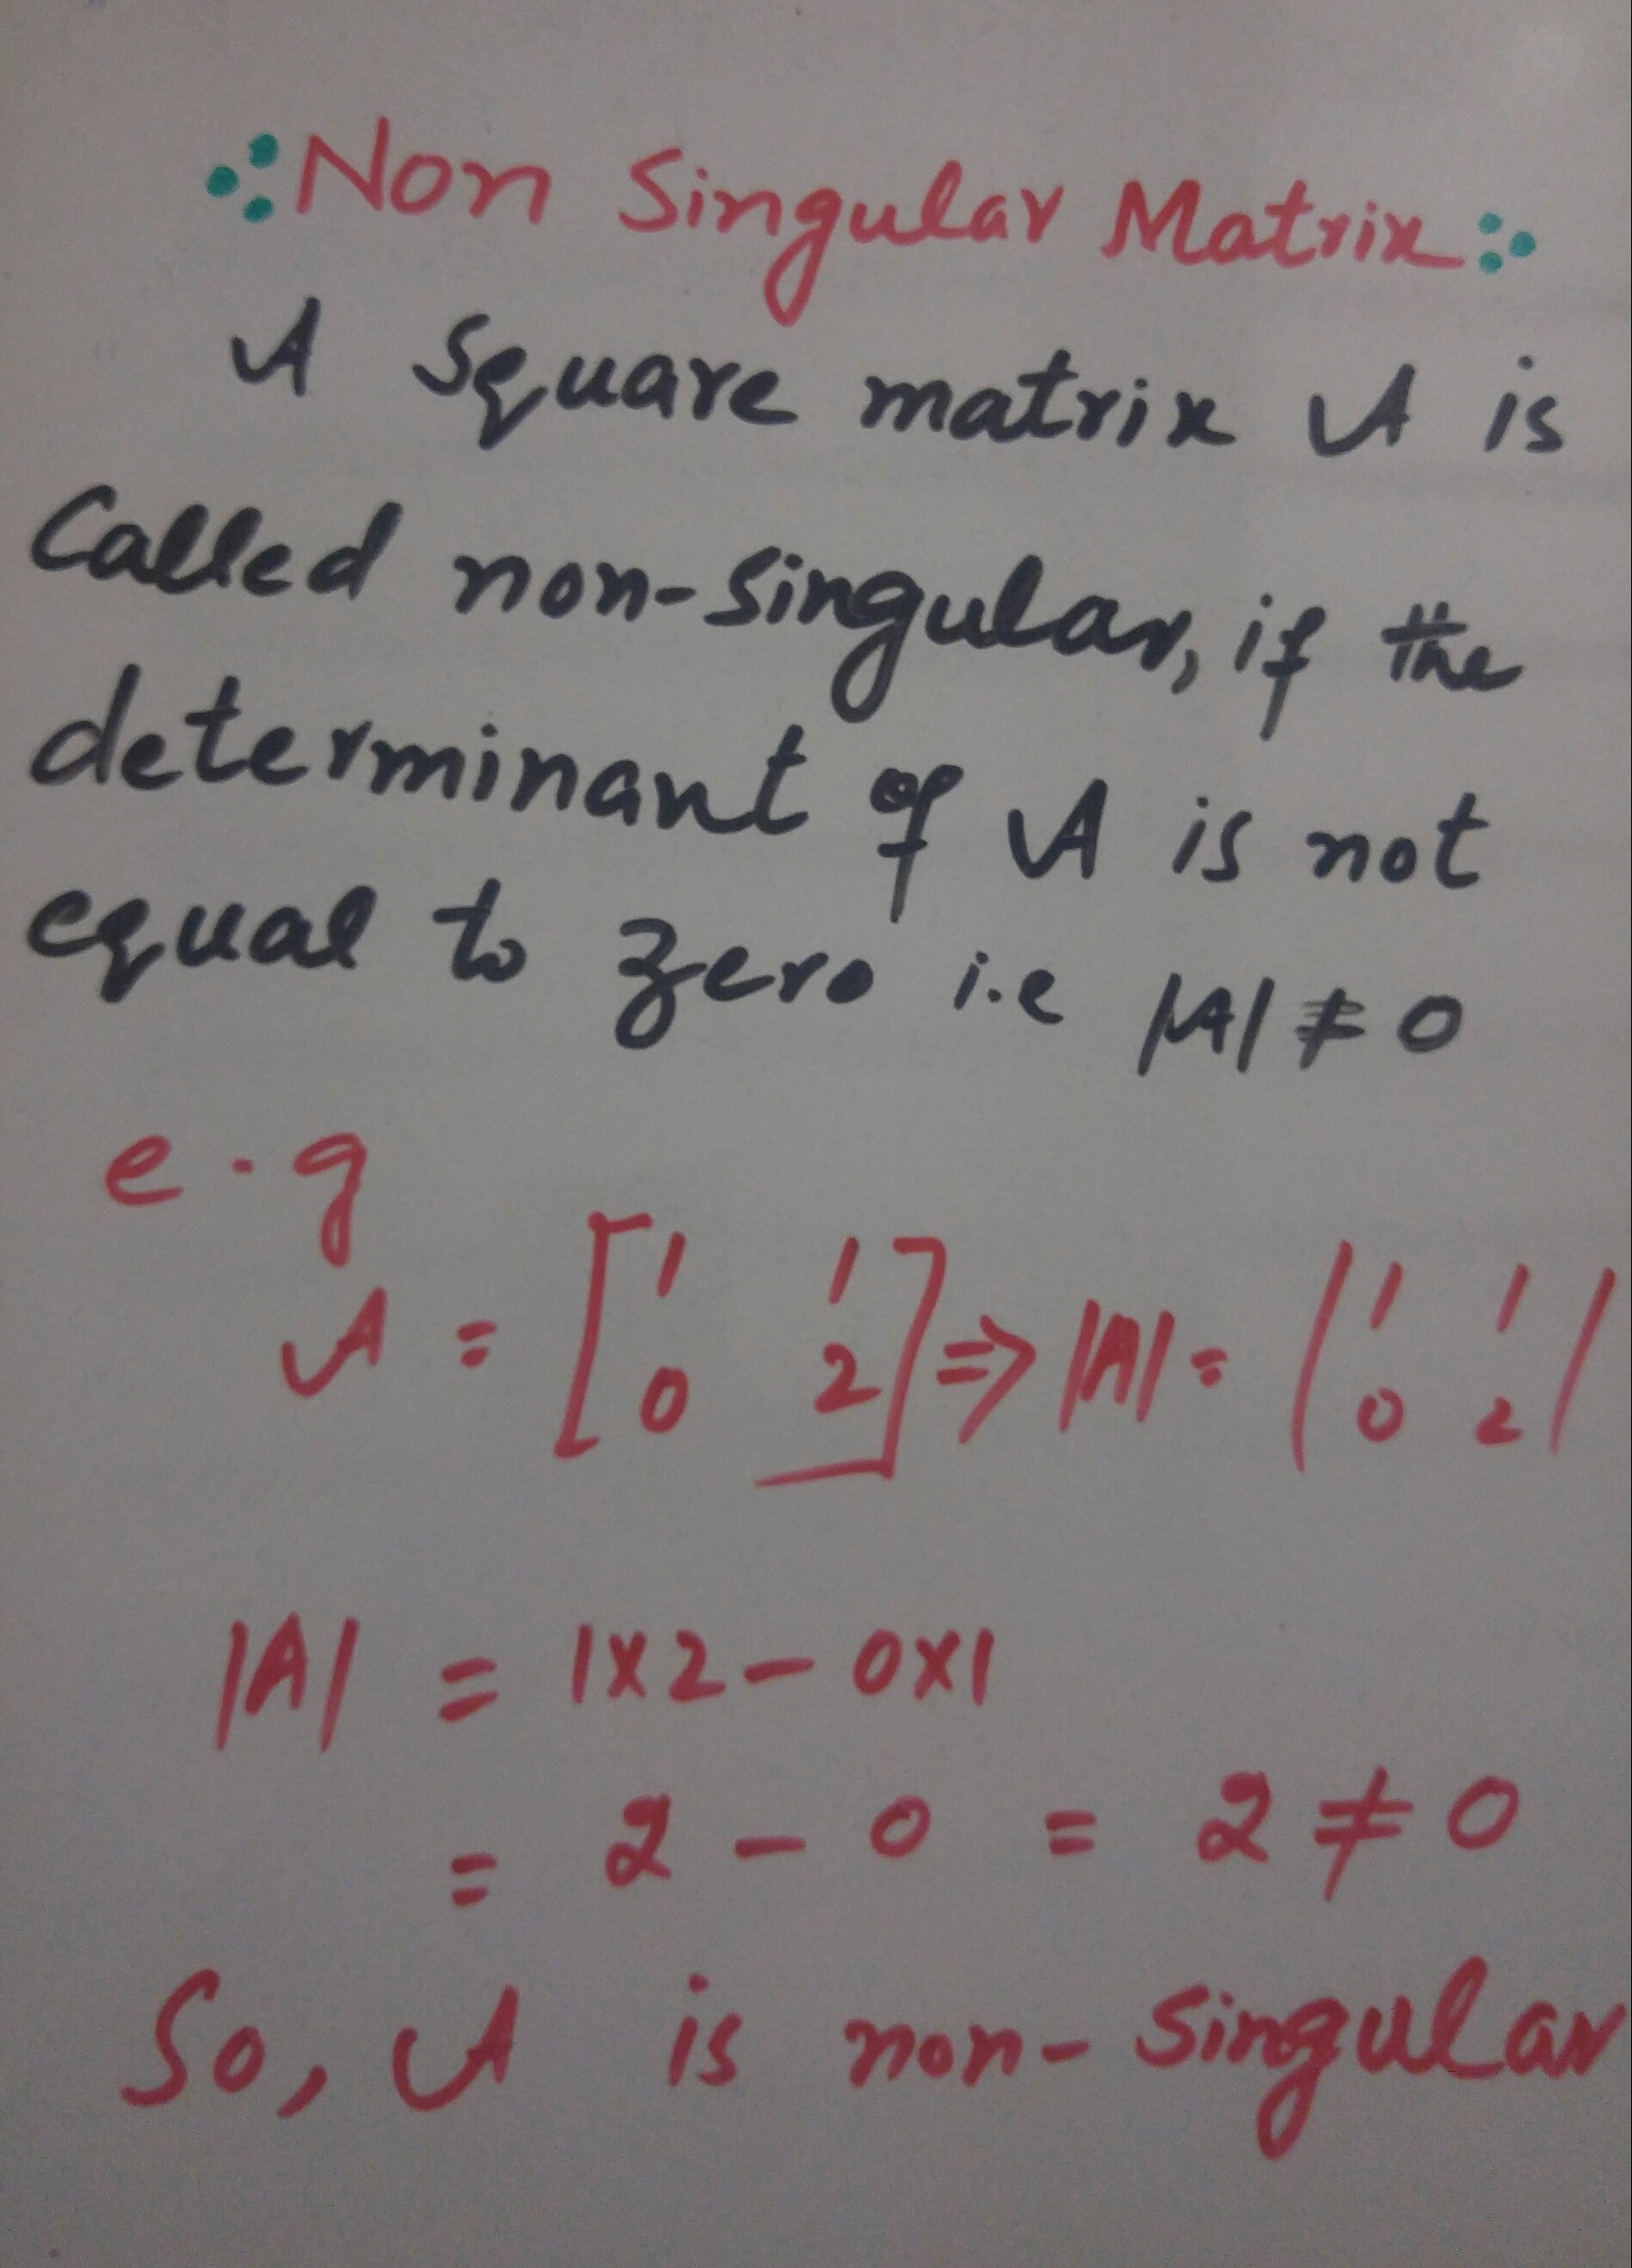 Non Singular Matrix
A Square matrix A is
Called non-singular, if the
determinant of A is not
equal to zero i.e |A| ≠ 0
e.g
A = [1 1; 0 2] ⇒ |A| = |1 1; 0 2|
|A| = 1×2 - 0×1
= 2 - 0 = 2 ≠ 0
So, A is non-singular